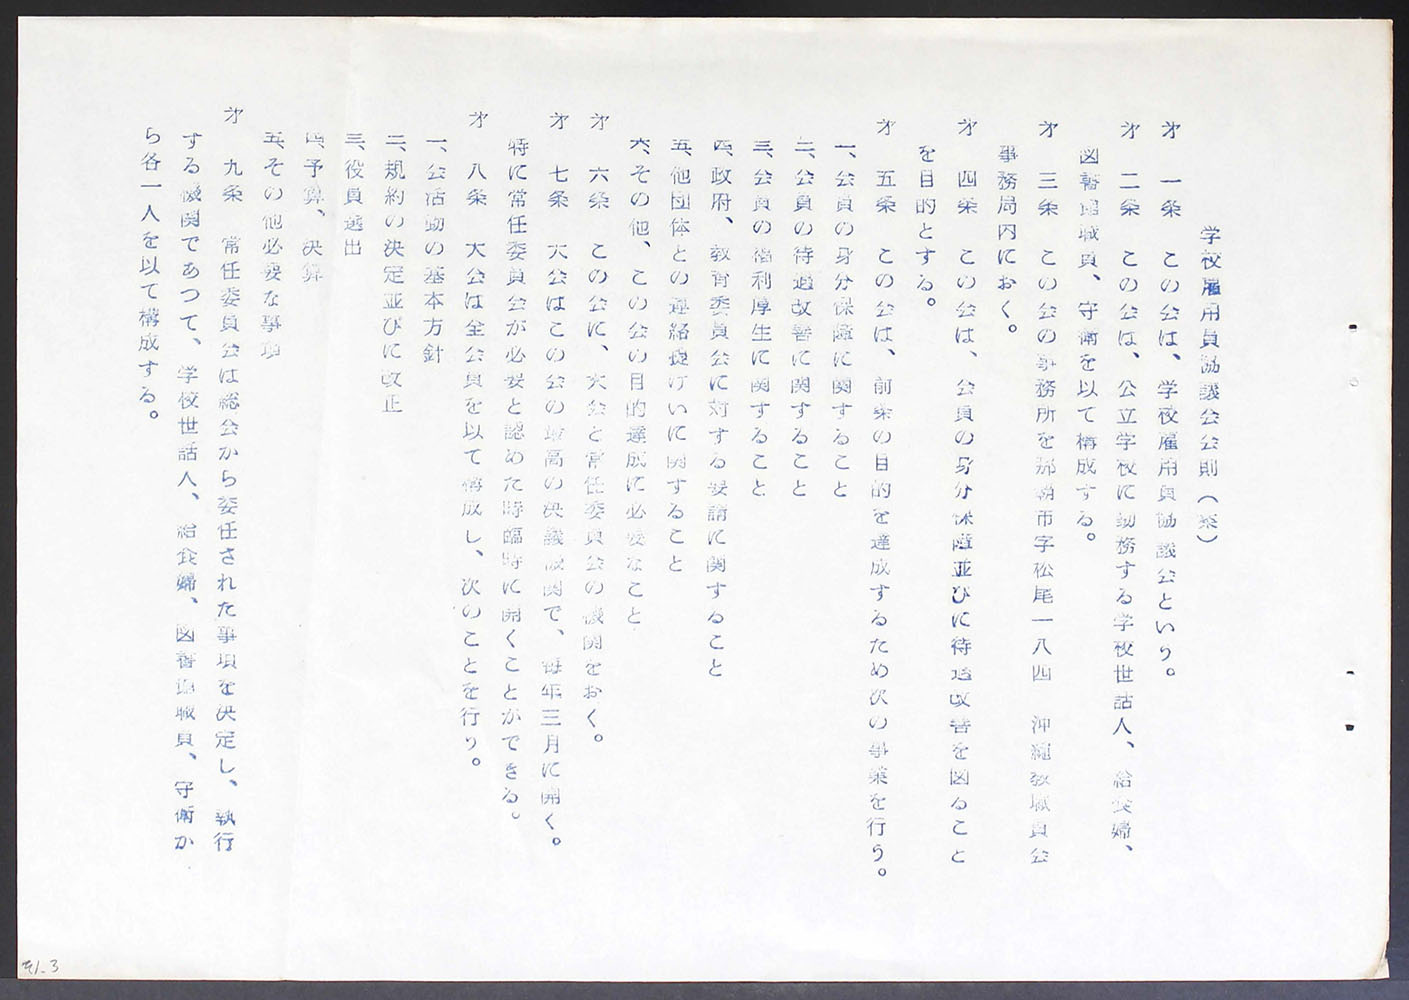 学校雇用員協議会会則(案)
才 一条 この会は、学校雇用員協議会という。
才 二条 この会は、公立学校に勤務する学校世話人、給食婦、
図書館職員、守衛を以て構成する。
才 三条 この会の事務所を那覇市字松尾一八四 沖縄教職員会
事務局内におく。
才 四条 この会は、会員の身分保障並びに待遇改善を図ること
を目的とする。
才 五条 この会は、前条の目的を達成するため次の事業を行う。
一、会員の身分保障に関すること
二、会員の待遇改善に関すること
三、会員の福利厚生に関すること
四、政府、教育委員会に対する要請に関すること
五、他団体との連絡提けいに関すること
六、その他、この会の目的達成に必要なこと
才 六条 この会に、大会と常任委員会の機関をおく。
才 七条 大会はこの会の最高の決議機関で、毎年三月に開く。
特に常任委員会が必要と認めた時臨時に開くことができる。
才 八条 大会は全会員を以て構成し、次のことを行う。
一、会活動の基本方針
二、規約の決定並びに改正
三、役員選出
四、予算、決算
五、その他必要な事項
才 九条 常任委員会は総会から委任された事項を決定し、執行
する機関であつて、学校世話人、給食婦、図書館職員、守衛か
ら各一人を以て構成する。